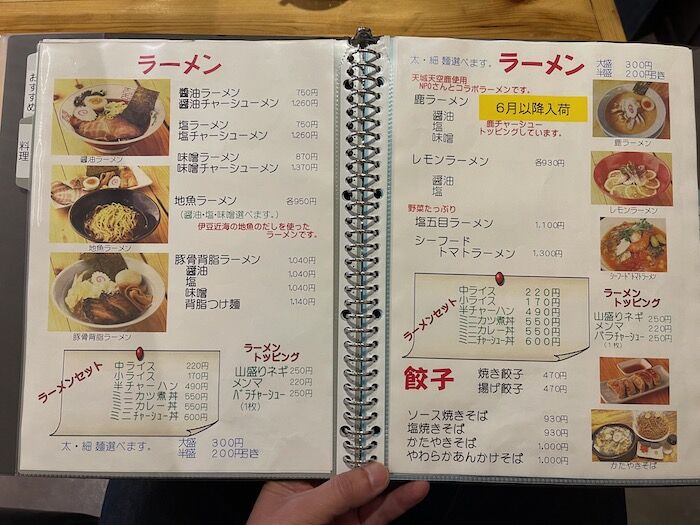 おすすめ
料理
ラーメン
醤油ラーメン 750円
醤油チャーシューメン 1,260円
塩ラーメン 750円
塩チャーシューメン 1,260円
味噌ラーメン 870円
味噌チャーシューメン 1,370円
醤油ラーメン
地魚ラーメン 各950円
(醤油・塩・味噌選べます。)
伊豆近海の地魚のだしを使った
ラーメンです。
地魚ラーメン
豚骨背脂ラーメン 1,040円
醤油 1,040円
塩 1,040円
味噌 1,040円
背脂つけ麺 1,140円
豚骨背脂ラーメン
ラーメンセット
中ライス 220円
小ライス 170円
半チャーハン 490円
ミニカツ煮丼 550円
ミニカレー丼 550円
ミニチャーシュー丼 600円
ラーメン
トッピング
山盛りネギ 250円
メンマ 220円
バラチャーシュー 250円
(1枚)
太・細 麺選べます。
大盛 300円
半盛 200円引き
太・細 麺選べます。
ラーメン
大盛 300円
半盛 200円引き
天城天空鹿使用
NPOさんとコラボラーメンです。
鹿ラーメン
6月以降入荷
醤油
塩
味噌
鹿チャーシュー
トッピングしています。
鹿ラーメン
レモンラーメン 各930円
醤油
塩
レモンラーメン
野菜たっぷり
塩五目ラーメン 1,100円
シーフード
トマトラーメン 1,300円
シーフードトマトラーメン
ラーメンセット
中ライス 220円
小ライス 170円
半チャーハン 490円
ミニカツ煮丼 550円
ミニカレー丼 550円
ミニチャーシュー丼 600円
ラーメン
トッピング
山盛りネギ 250円
メンマ 220円
バラチャーシュー 250円
(1枚)
餃子
焼き餃子 470円
揚げ餃子 470円
ソース焼きそば 930円
塩焼きそば 930円
かたやきそば 1,000円
やわらかあんかけそば 1,000円
かたやきそば